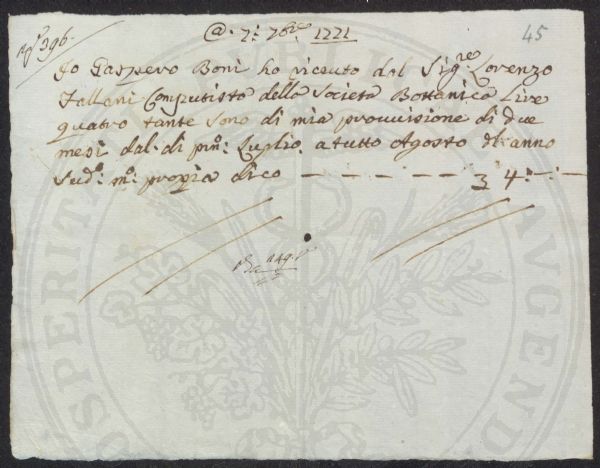 n° 396.
@. 7: 7bre 1771
45
Io Gaspero Boni ho riceuto dal Sigre Lorenzo
Fallani Computista della Società Bottanica Lire
quatro tante sono di mia provvisione di due
mesi dal di pmo: Luglio a tutto Agosto dl: anno
sudo: mo: propria dico — — — — — — 4: — : —
PROSPERITATI PUBLICAE AUGENDAE